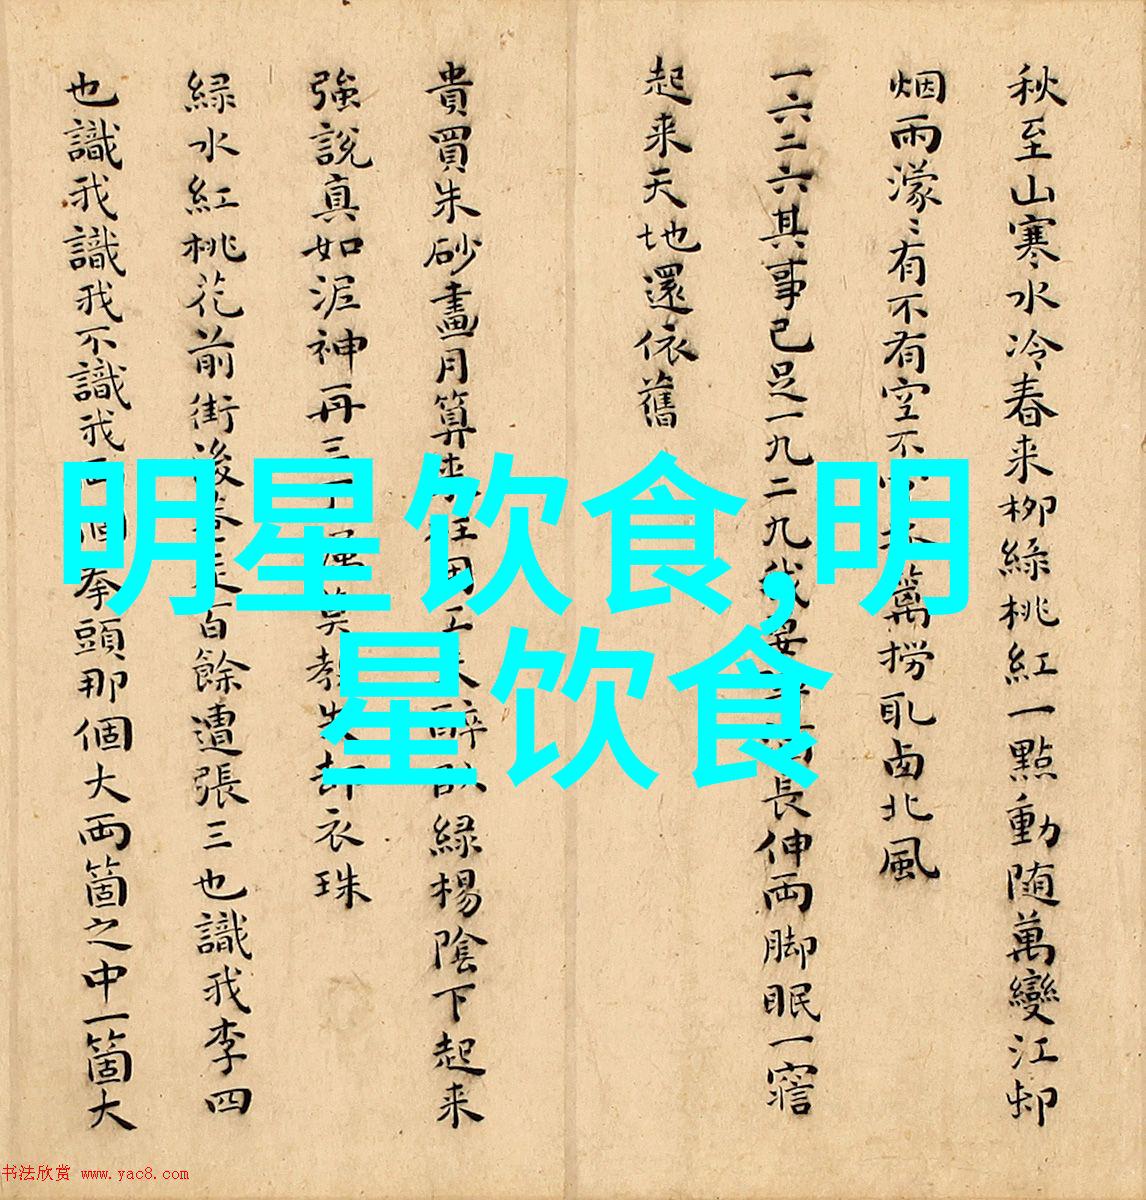 秋至山寒水冷春来柳緑桃紅一點動随萬變江邨
烟雨濛〻有不有空不撈取西北風
一六二六其事已足一九二九我長伸両脚眠一寤
起来天地還依舊
貴買朱砂畫月算来枉用工醉臥緑楊陰下起来
強說真如泥神再三莫教失却衣珠
緑水紅桃花前街後巷走百餘遭張三也識我李四
也識我識我不識我個拳頭那個大両箇之中一箇大
明星饮食,明
星饮食
书法欣赏 www.yac8.com